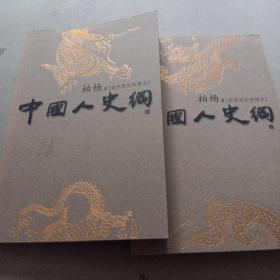 柏杨 著
中國人史綱
26
柏杨 著
國人史綱